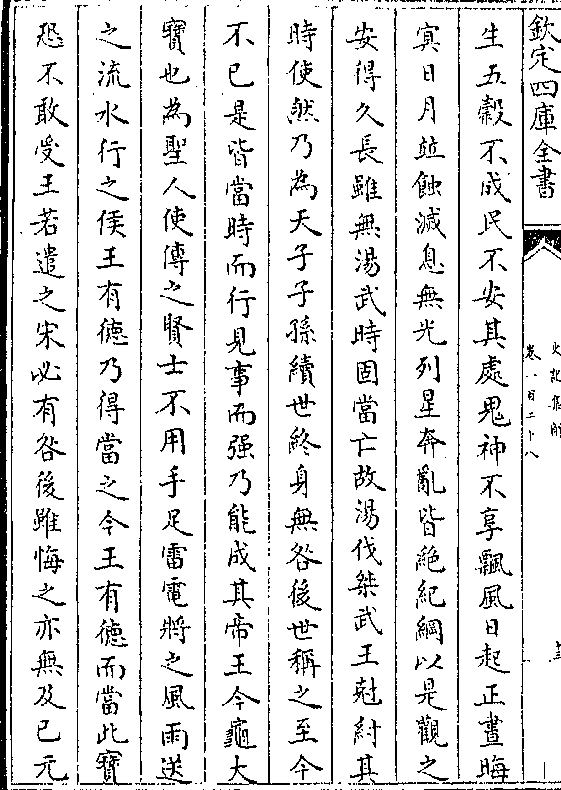 欽定四庫全書
史記集解
卷一百二十八
生五穀不成民不安其處鬼神不享飄風日起正晝晦
㝠日月並蝕滅息無光列星奔亂皆絶紀綱以是觀之
安得久長雖無湯武時固當亡故湯伐桀武王尅紂其
時使然乃為天子子孫續世終身無咎後世稱之至今
不已是皆當時而行見事而强乃能成其帝王今龜大
寶也為聖人使傳之賢士不用手足雷電將之風雨送
之流水行之侯王有徳乃得當之今王有徳而當此寶
恐不敢受王若遣之宋必有咎後雖悔之亦無及已元